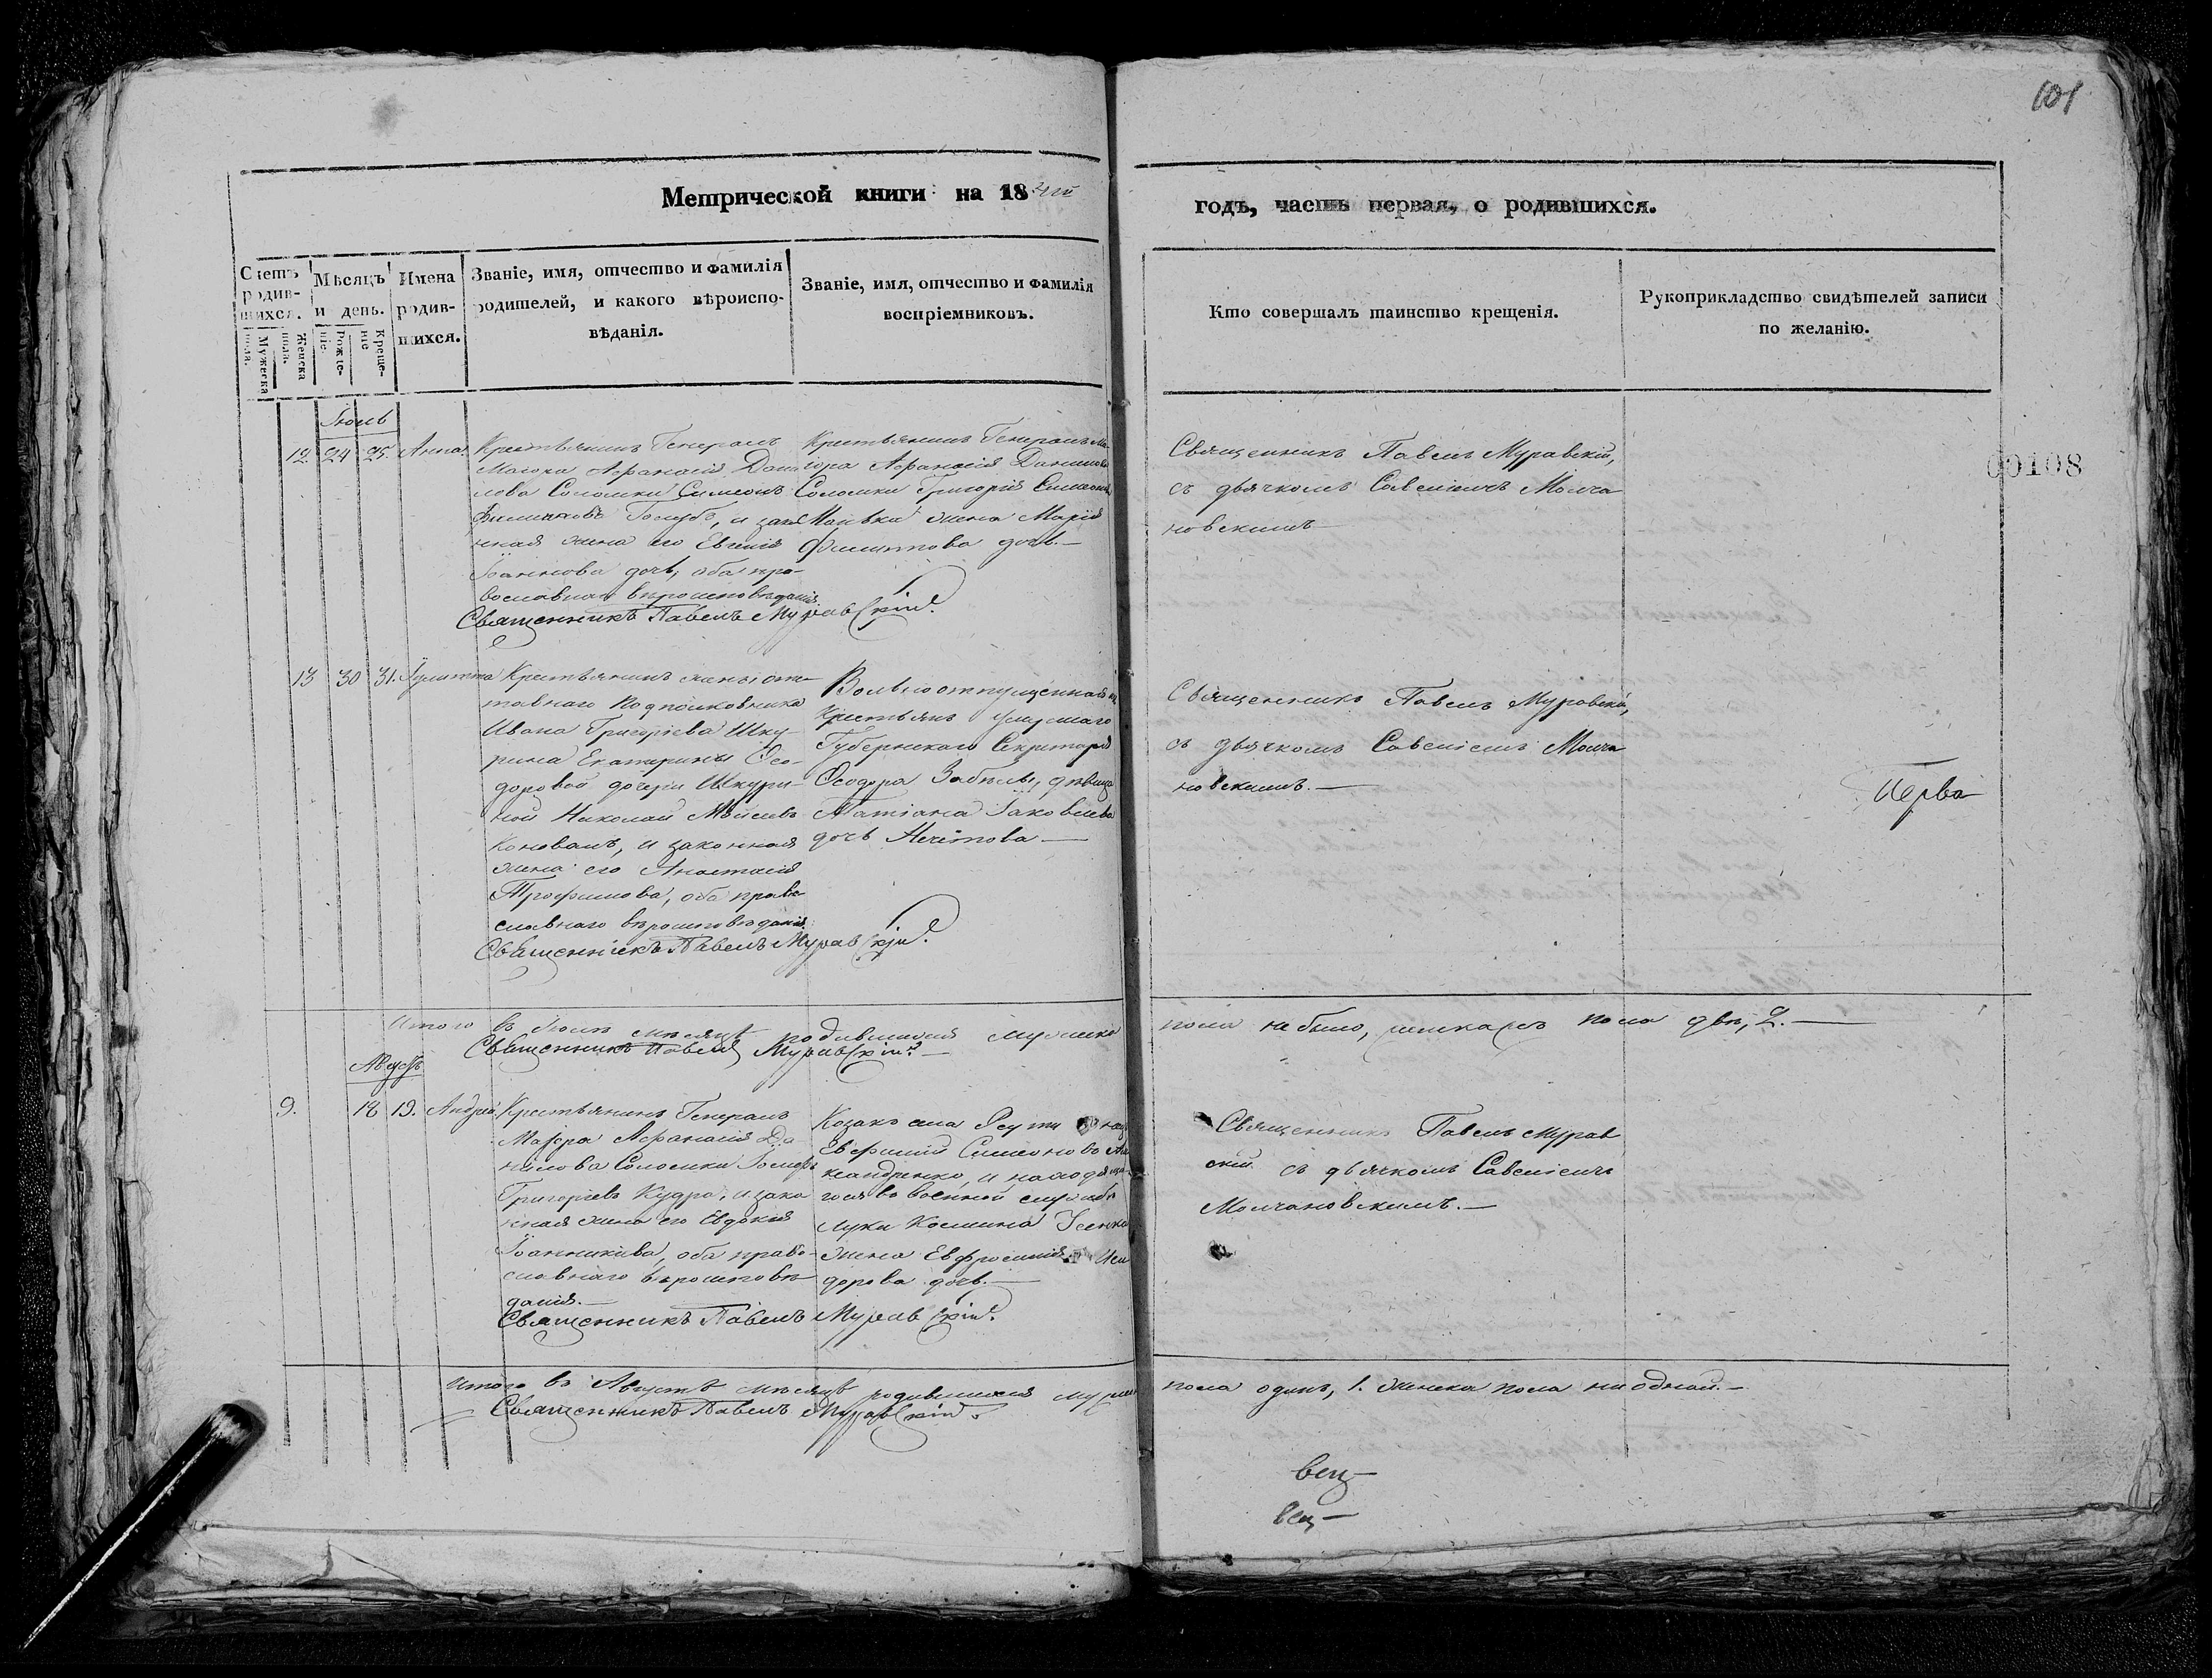 Метрической книги на 18
годъ, часть первая, о родившихся.
Счетъ родившихся.
Мужеска пола.
Женска пола.
Мѣсяцъ и день.
Рожденіе.
Крещеніе
Имена родившихся.
Званіе, имя, отчество и фамилія
родителей, и какого вѣроиспо-
вѣданія.
Званіе, имя, отчество и фамилія
воспріемниковъ.
Кто совершалъ таинство крещенія.
Рукоприкладство свидѣтелей записи
по желанію.
00108
Іюль
12. 24 25. Анна.
Крестьянинъ Генералъ
Маіора Афанасія Дани
лова Соломки Симеонъ
Голубъ, и зако
нная жена его Евгенія
Іоаннова дочь, оба пра-
вославнаго вѣроисповѣданія
Священникъ Павелъ Муравскій.
Крестьянинъ Генералъ Ма-
іора Афанасія Данилова
Соломки Григорія Симеонова
жена Марія
Филиппова дочь.—
Священникъ Павелъ Муравскій,
съ дьячкомъ Савеліемъ Молча
новскимъ—
13 30 31. Іулитта
Крестьянинъ жены отс-
тавнаго Подполковника
Ивана Григоріева Шку-
рина Екатерины Ѳео-
доровой дочери Шкури-
ной Николай Мойсеевъ
Коновалъ, и законная
жена его Анастасія
Трофимова, оба право
славнаго вѣроисповѣданія.
Священникъ Павелъ Муравскій.
Вольноотпущенная изъ
Крестьянъ умершаго
Губернскаго Секретаря
Ѳеодора Забѣлы, дѣвица
Татіана Іаковлева
дочь Нечітова—
Священникъ Павелъ Муравскій,
съ дьячкомъ Савеліемъ Молча
новскимъ.—
Перва
Итого въ Іюлѣ мѣсяцѣ родившихся мужеска
пола не было, женскаго пола двѣ, 2.—
Священникъ Павелъ Муравскій.—
Августъ
9. 18 19. Андрей.
Крестьянинъ Генералъ
Маіора Афанасія Да
нилова Соломки
Григоріевъ Кудра, и зако
нная жена его Евдокія
Іоанникіева, оба право-
славнаго вѣроисповѣ
данія.—
Священникъ Павелъ Муравскій.
Козакъ села
Евфимій Симеоновъ Але
ксандренко, и находяща-
гося въ военной службѣ
Луки Космина Усенка
жена Евфросинія Иси
дорова дочь.—
Священникъ Павелъ Мурав
скій съ дьячкомъ Савеліемъ
Молчановскимъ.—
Итого въ Августѣ мѣсяцѣ родившихся мужеска
пола одинъ, 1. женска пола ни одной.—
Священникъ Павелъ Муравскій.